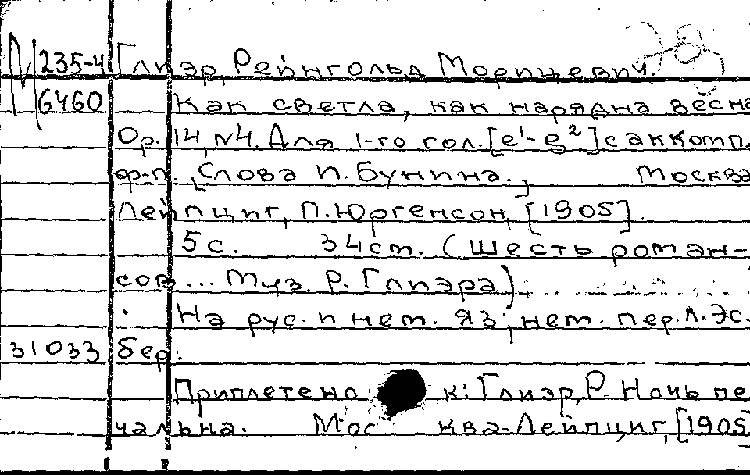 М 235-4 Глиэр, Рейнгольд Морицевич.
6460 Как светла, как нарядна весна
Op. 14, №4. Для 1-го гол. [e¹-e²] с аккомп.
ф-п. [Слова И. Бунина.] Москва
Лейпциг, П. Юргенсон, [1905].
5 с. 34 ст. (Шесть роман-
сов... Муз. Р. Глиэра)
На рус. и нем. яз; нем. пер. Л. Эс.
31033 бер.
Приплетено к: Глиэр, Р. Ночь пе
чальна. Мос ква-Лейпциг, [1905]